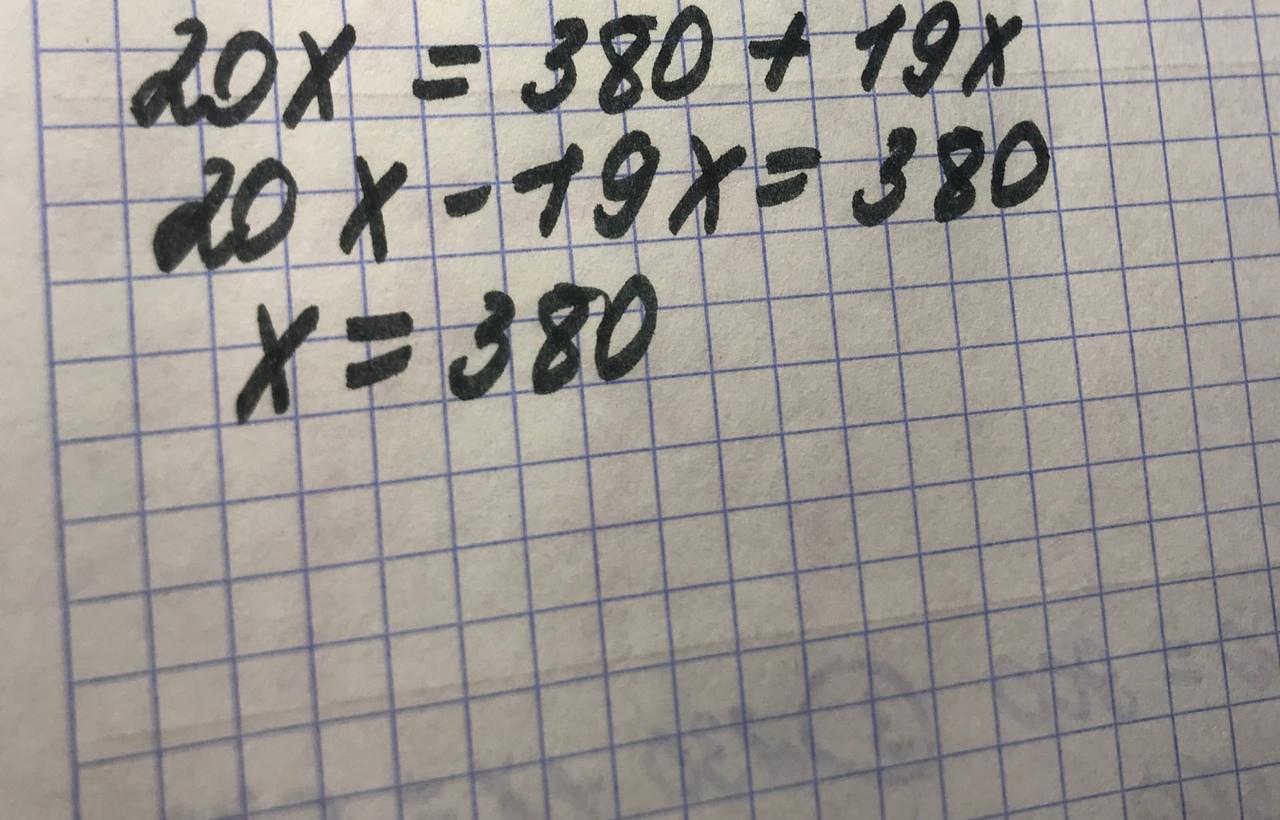 20x = 380 + 19x
20x - 19x = 380
x = 380